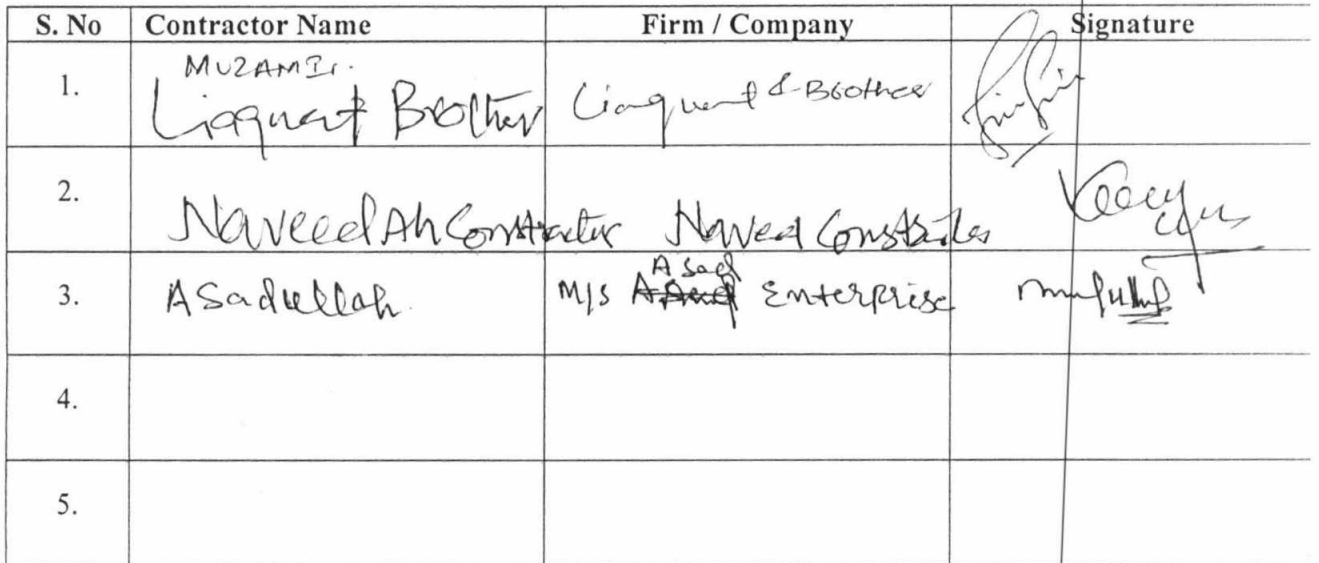 S. No Contractor Name Firm / Company Signature
1. MUZAMIL.
Liaquat Brother Liaquat & Brother
2. Naveed Ali Contractor Naveed
3. Asadullah. M/S Asad Enterprise
4.
5.